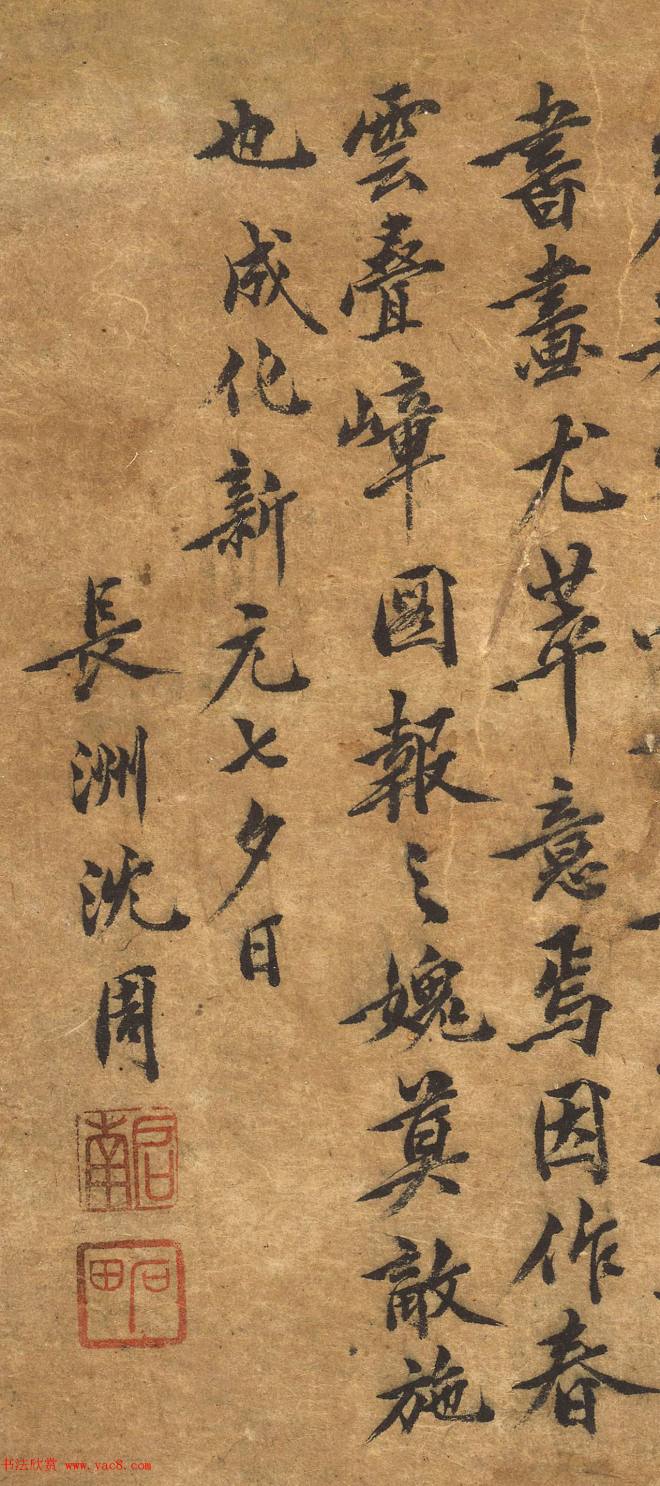 書畫尤萃意焉因作春
雲疊嶂圖報之媿莫敵施
也成化新元七夕日
長洲沈周
啟南
石田
书法欣赏 www.yac8.com